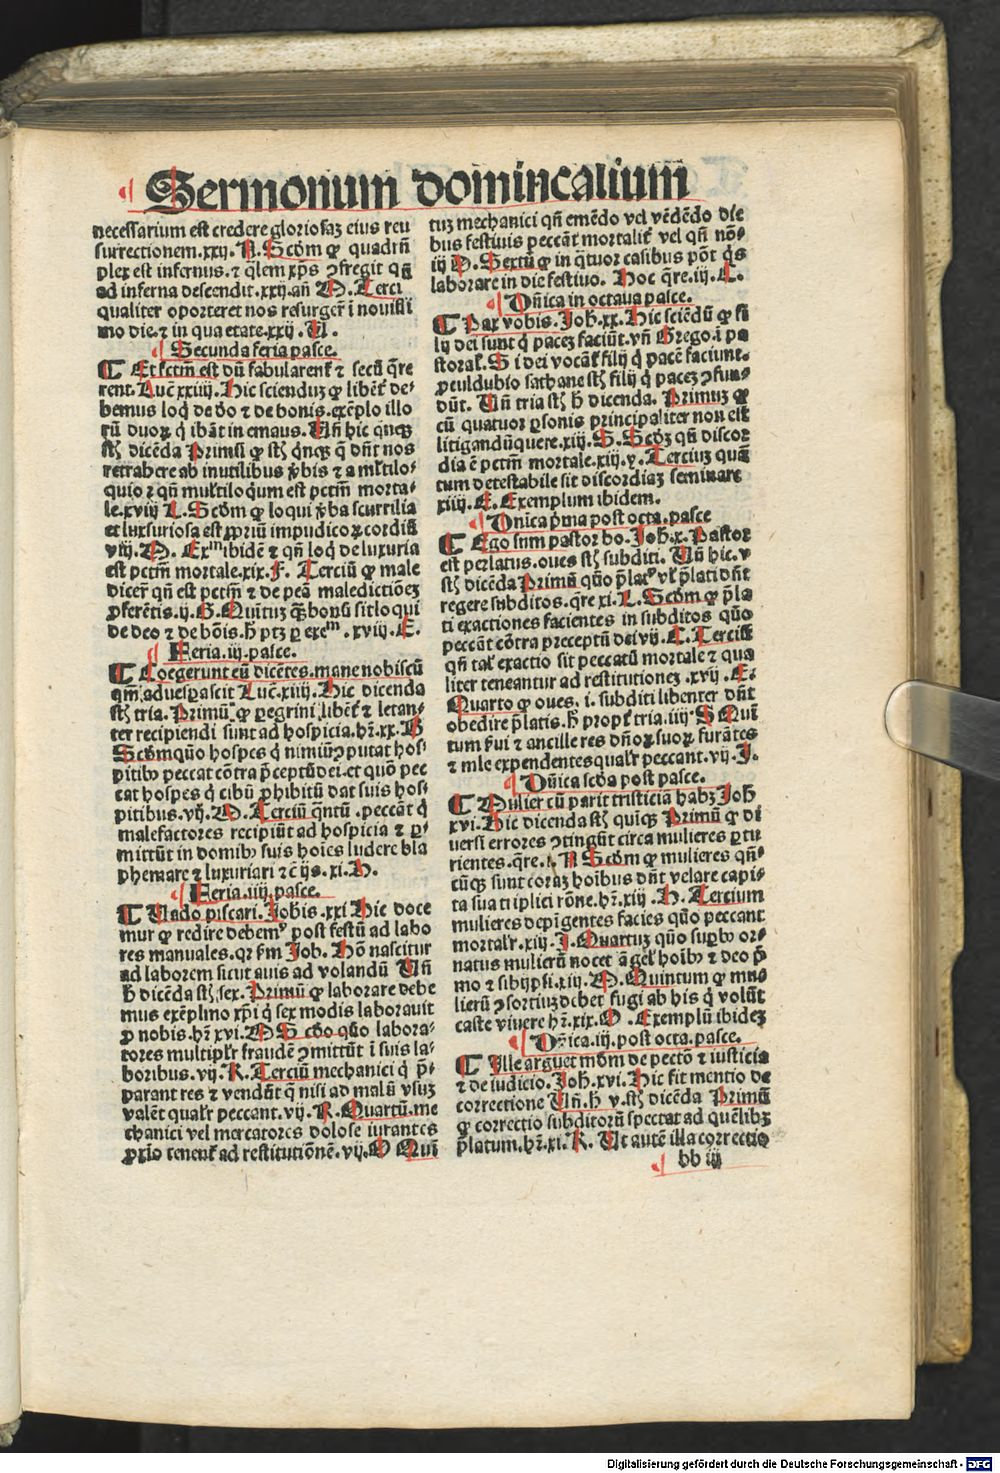 Sermonum dominicalium
necessarium est credere gloriosaz eius reu
surrectionem.xxv.N.Scd̄m ꝙ quadrū
plex est infernus.⁊ q̄lem xp̄s ↄfregit qn̄
ad inferna descendit.xxij.an̄ D.Terci
qualiter oporteret nos resurgeꝶ ī nouissi
mo die.⁊ in qua etate.xxij.U.
Secunda feria pasce.
Et fctm̄ est dū fabularenꝶ ⁊ secū q̄re
rent.Luce xxiiij.Hic scienduz ꝙ libēt de-
bemus loq̇ de deo ⁊ de bonis.exēplo illo
rū duoꝝ q̇ ibāt in emaus.Un̄ hic qnqz
st̄ dicēda Primū ꝙ st̄ qnqz q̄ dn̄t nos
retrahere ab inutilibus v̄bis ⁊ a mltilo-
quio ⁊ qn̄ multiloq̇um est pctm̄ morta-
le.xviij L.Scd̄m ꝙ loqui v̄ba scurrilia
et luxuriosa est ꝓpriū impudicoꝝ cordiū
viij.D. Exm ibidē ⁊ qn̄ loq̇ de luxuria
est pctm̄ mortale.xix.F. Terciū ꝙ male
diceꝶ qn̄ est pctm̄ ⁊ de pea maledictiōez
ꝓferētis.ij.G.Quītuz q̄ bonū sit loqui
de deo ⁊ de bōis.ħ ptz ꝑ exem.xviij.E.
Feria.iij.pasce.
Coegerunt eū dicētes.mane nobiscū
qm̄ aduesꝑascit Luc̄.xiiij.Hic dicenda
st̄ tria.Primū ꝙ ꝑegrini libēt ⁊ letan-
ter recipiendi sunt ad hospicia.hꝛ.xx.B
Scd̄m quō hospes q̇ nimiū ↄputat hos-
pitibꝰ peccat cōtra p̄ceptū dei.et quō pec
cat hospes q̇ cibū ꝓhibitū dat suis hos-
pitibus.vij.D.Terciū q̄ntū.peccāt q̇
malefactores recipiūt ad hospicia ⁊ ꝑ-
mittūt in domibꝰ suis hoīes ludere bla
phemare ⁊ luxuriari ⁊c̄ ijs.xi.D.
Feria.iiij.pasce.
Uado piscari.Johis.xxi Hic doce
mur ꝙ redire debemꝰ post festū ad labo
res manuales.qꝛ fm Job.Hō nascitur
ad laborem sicut auis ad volandū Un̄
ħ dicēda st̄ sex.Primū ꝙ laborare debe
mus exēplo xp̄i q̇ sex modis laborauit
ꝓ nobis.hꝛ xvi.D Scd̄o quō labora-
tores multiplꝛ fraudē ↄmittūt ī suis la-
boribus.vij.R.Terciū mechanici q̇ p̄-
parant res ⁊ vendūt q̄ nisi ad malū vsuz
valēt qualꝛ peccant.vij.R.Quartū.me
chanici vel mercatores dolose iurantes
ꝓxīo tenenꝶ ad restitutionē.vij.O Quī
tuz mechanici qn̄ emēdo vel vēdēdo die
bus festiuis peccāt mortalit̄ vel qn̄ nō-
iij D.Sextū ꝙ in q̇tuor casibus pōt q̇s
laborare in die festiuo. Hoc q̄re.iij.L.
Dn̄ica in octaua pasce.
Pax vobis.Joh̄.xx.Hic sciēdū ꝙ fi
lij dei sunt q̇ pacez faciūt.vn̄ Grego.ī pa
storal̄.Si dei vocāt filij q̇ pacē faciunt.
ꝓculdubio sathane st̄ filij q̇ pacez ↄfun-
dūt. Un̄ tria st̄ ħ dicenda. Primuz ꝙ
cū quatuor ꝑsonis principaliter non est
litigandū quere.xiij.S.Scd̄z qn̄ discor
dia ē pctm̄ mortale.xiij.y.Tercius quā
tum detestabile sit discordiaz seminare
xiiij.E.Exemplum ibidem.
Dn̄ica p̄ma post octa.pasce
Ego sum pastor bo.Joh̄.x.Pastor
est prelatus.oues st̄ subditi. Un̄ hic.v
st̄ dicēda Primū quō p̄latꝰ vl̄ p̄lati dn̄t
regere subditos.q̄re xi.L.Scd̄m ꝙ p̄la
ti exactiones facientes in subditos quō
peccāt cōtra preceptū dei vij.C.Terciū
qn̄ talꝭ exactio sit peccatū mortale ⁊ qua
liter teneantur ad restitutionez.xvij.E.
Quarto ꝙ oues.i.subditi libenter dn̄t
obedire p̄latis.ħ propt̄ tria.iiij S Quī
tum fui ⁊ ancille res dn̄oꝝ suoꝝ furātes
⁊ mle expendentes qualꝛ peccant.vij.J.
Dn̄ica scd̄a post pasce.
Mulier cū parit tristiciā habz Joh̄
xvi.Hic dicenda st̄ quiqz Primū ꝙ di
uersi errores ↄtingūt circa mulieres ꝑtu
rientes.q̄re. N Scd̄m ꝙ mulieres qn̄-
cūqz sunt coraz hoībus dn̄t velare capi-
ta sua triplici rōne.hꝛ.xiij.H. Tercium
mulieres depīgentes facies quō peccant
mortalꝛ.xij.J.Quartuz quō suꝑbꝰ or-
natus mulierū nocet āgel̄ hoībꝰ ⁊ deo p̄
mo ⁊ sibijpsi.xiij.D.Quintum ꝙ mu-
lierū ↄsortiuz debet fugi ab his q̇ volūt
caste viuere hꝛ.xix.D.Exemplū ibidez
Dn̄ica.iij.post octa.pasce.
Ille arguet mūdm de pectō ⁊ iusticia
⁊ de iudicio.Joh̄.xvi.Hic fit mentio de
correctione Un̄.ħ v.st̄ dicēda Primū
ꝙ correctio subditorū spectat ad quēlibz
p̄latum.hꝛ.xi.K. Ut autē illa correctio
bb iij
Digitalisierung gefördert durch die Deutsche Forschungsgemeinschaft - DFG